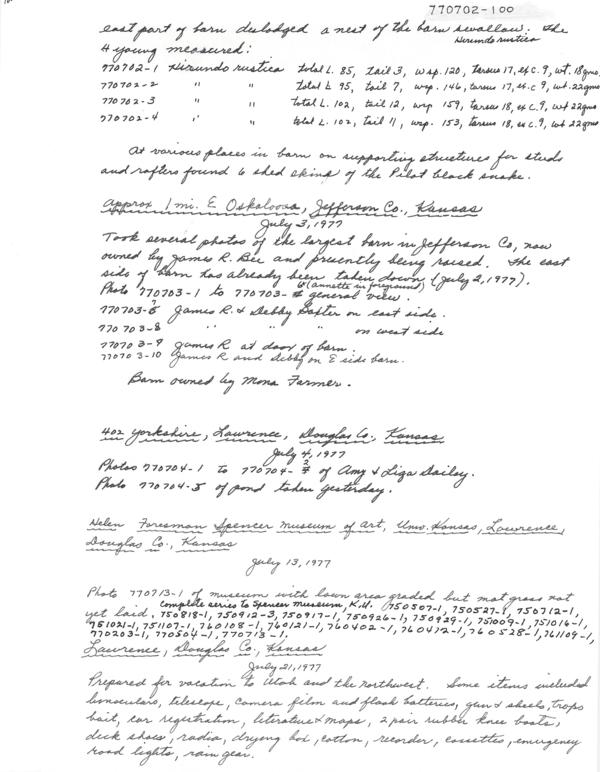 770702-100
east part of barn dislodged a nest of the barn swallow. The
Hirundo rustica
4 young measured:
770702-1 Hirundo rustica total L. 85, tail 3, wsp. 120, tarsus 17, ex c. 9, wt. 18 gms.
770702-2 " " total L 95, tail 7, wsp. 146, tarsus 17, ex. c 9, wt. 22 gms
770702-3 " " total L. 102, tail 12, wsp 159, tarsus 18, ex c. 9, wt 22 gms
770702-4 " " total L. 102, tail 11, wsp. 153, tarsus 18, ex c. 9, wt 22 gms
At various places in barn on supporting structures for studs
and rafters found 6 shed skins of the Pilot black snake.
Approx 1 mi. E Oskaloosa, Jefferson Co., Kansas
July 3, 1977
Took several photos of the largest barn in Jefferson Co, now
owned by James R. Bee and presently being raised. The east
side of barn has already been taken down (July 2, 1977).
6 (Annette in foreground)
Photo 770703-1 to 770703- general view.
770703- James R. & Debby on east side.
770703-8 " " " on west side
770703-9 James R at door of barn.
770703-10 James R and Debby on E side barn.
Barn owned by Mona Farmer.
402 Yorkshire, Lawrence, Douglas Co., Kansas
July 4, 1977
Photos 770704-1 to 770704-2 of Amy & Liza Dailey.
Photo 770704-3 of pond taken yesterday.
Helen Foresman Spencer Museum of Art, Univ. Kansas, Lawrence,
Douglas Co., Kansas
July 13, 1977
Photo 770713-1 of museum with lawn area graded but mat grass not
Complete series to Spencer Museum, K.U. 750507-1, 750527-1, 750712-1,
yet laid. 750818-1, 750912-3, 750917-1, 750926-1, 750929-1, 751009-1, 751016-1,
751021-1, 751107-1, 760108-1, 760121-1, 760402-1, 760412-1, 760528-1, 761109-1,
770203-1, 770504-1, 770713-1.
Lawrence, Douglas Co., Kansas
July 21, 1977
Prepared for vacation to Utah and the northwest. Some items included
binoculars, telescope, camera film and flash batteries, gun & shells, traps
bait, car registration, literature & maps, 2 pair rubber knee boots,
deck shoes, radio, drying box, cotton, recorder, cassettes, emergency
road lights, rain gear.